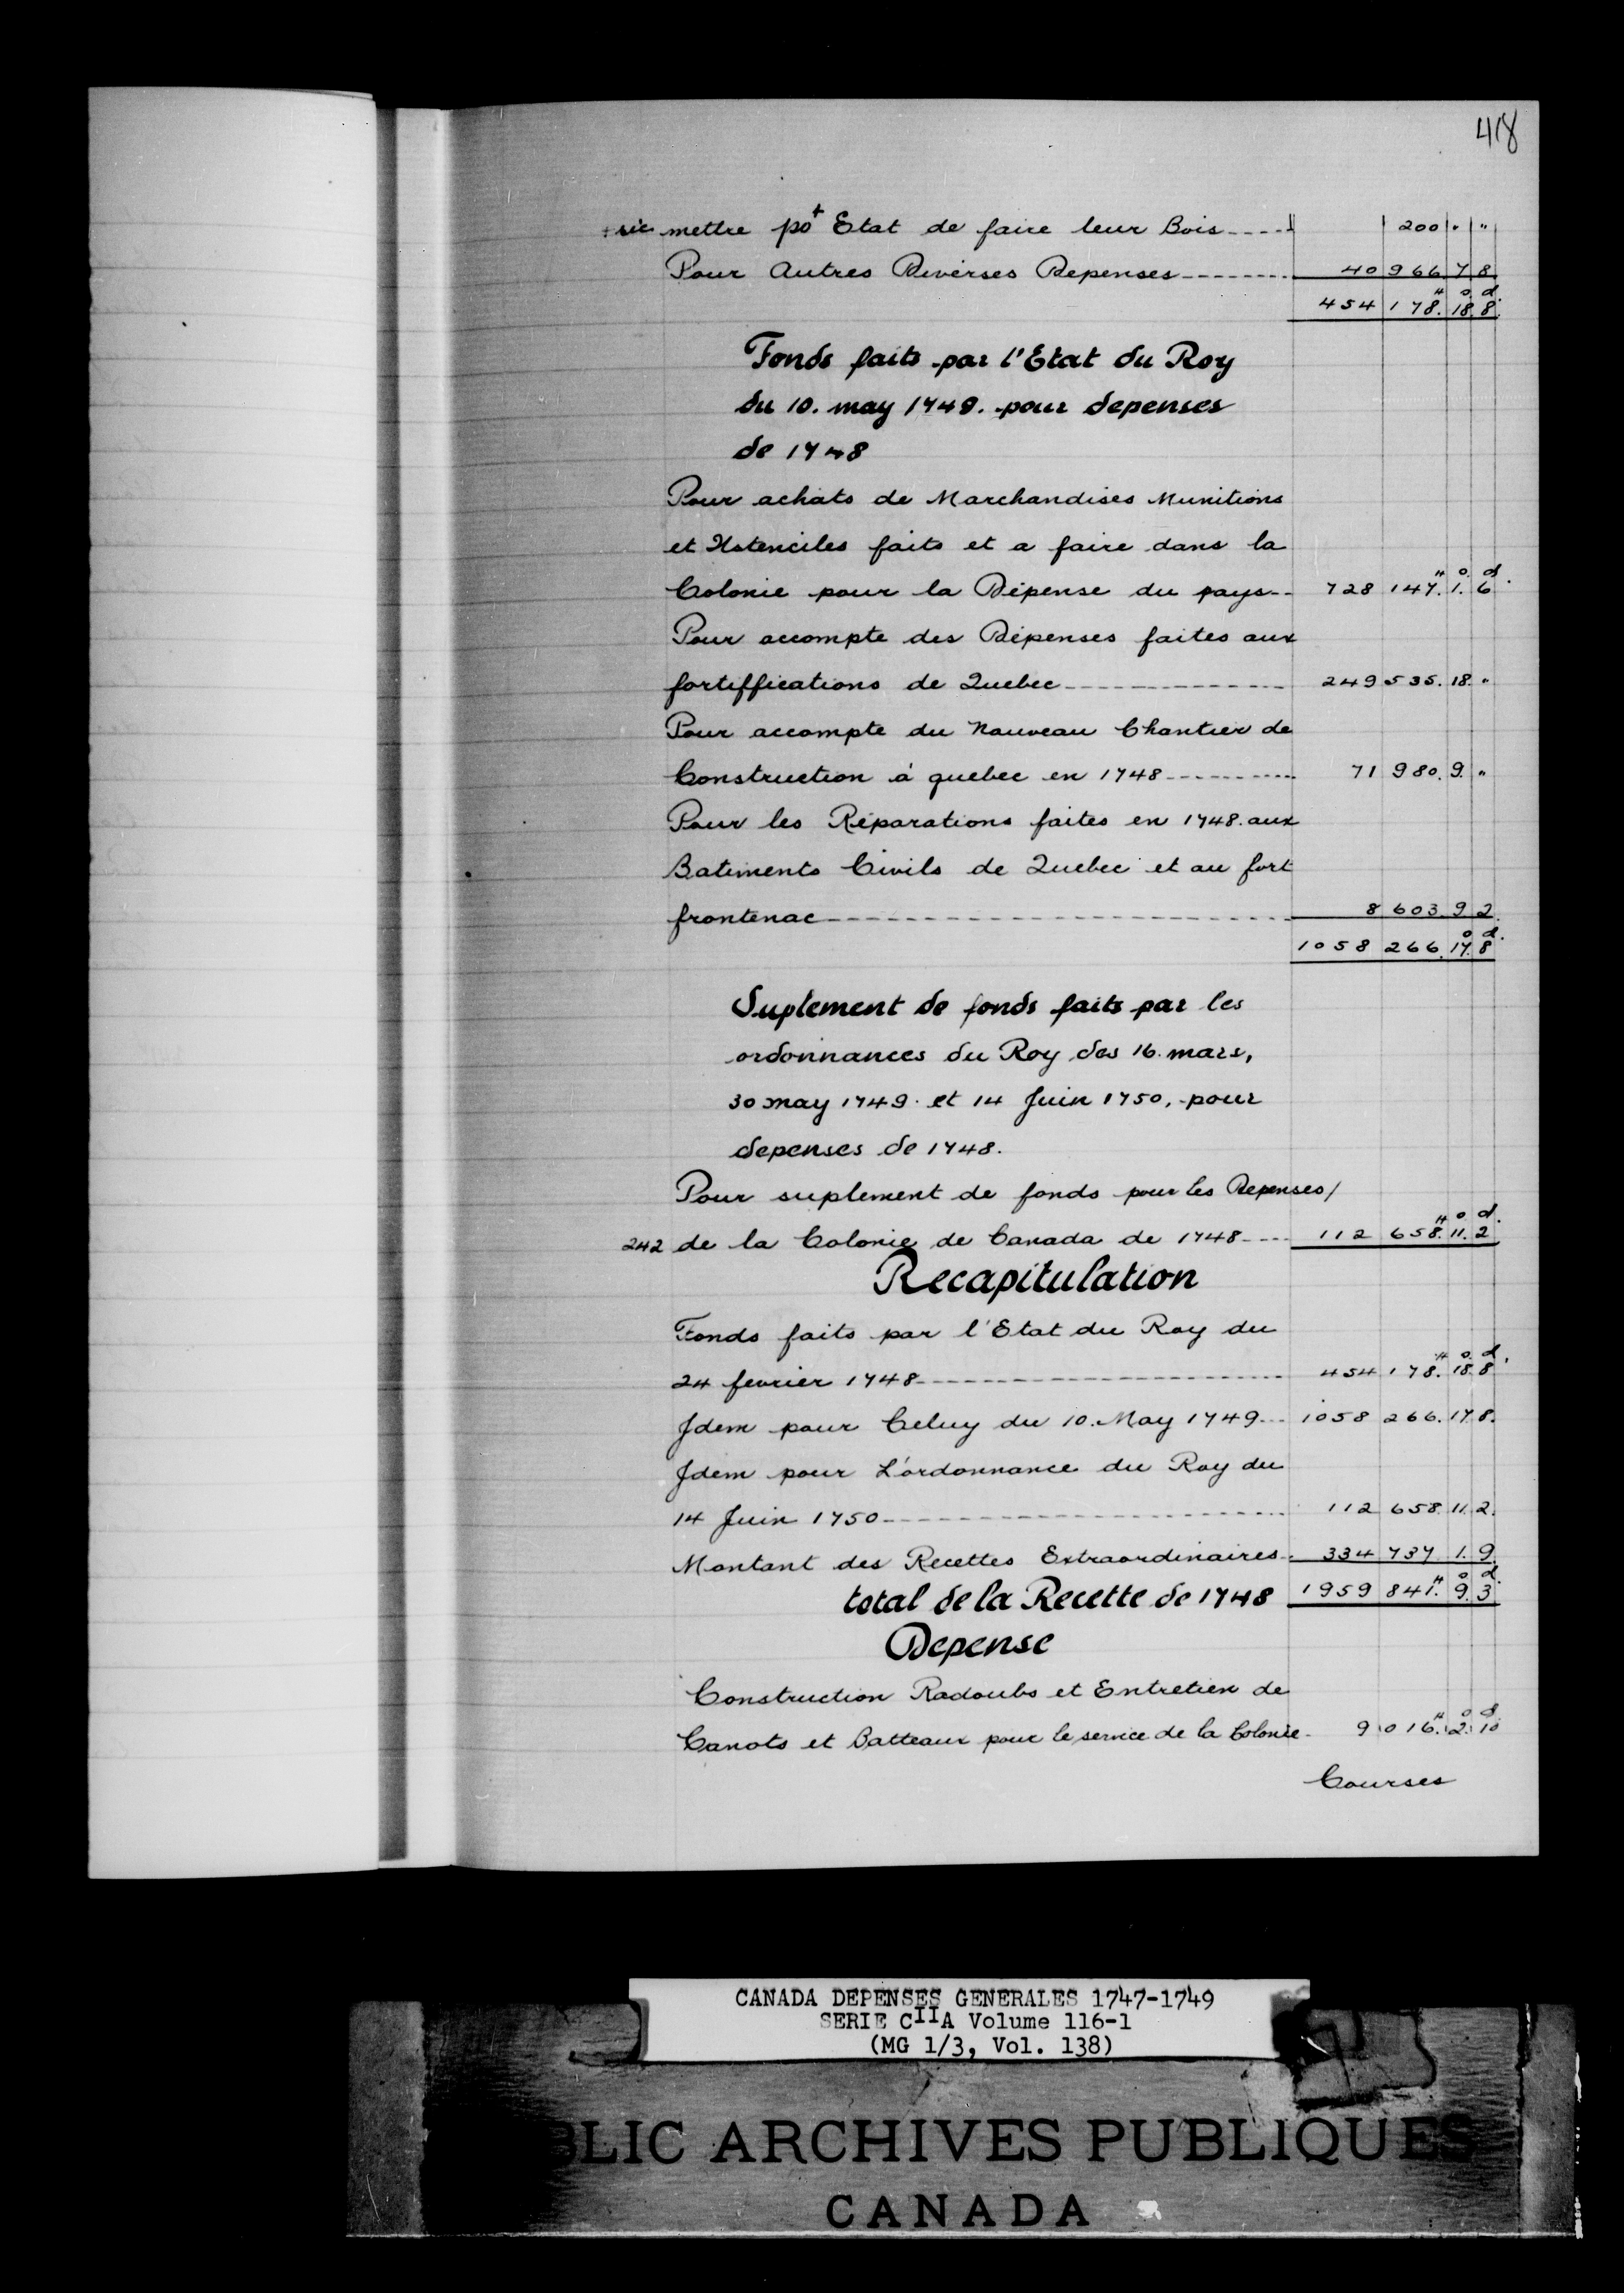 418
+ sic mettre po+ Etat de faire leur Bois 200 " "
Pour Autres Diverses Depenses 40 966. 7 8.
454 178.# 18.s 8.d
Fonds faits par l'Etat du Roy
du 10. may 1749. pour depenses
de 1748
Pour achats de Marchandises Munitions
et Ustenciles faits et a faire dans la
Colonie pour la Dépense du pays 728 147.# 1.s 6.d
Pour accompte des Dépenses faites aux
fortiffications de Quebec 249 535. 18. "
Pour accompte du Nouveau Chantier de
Construction à quebec en 1748 71 980. 9. "
Pour les Réparations faites en 1748. aux
Batiments Civils de Quebec et au fort
frontenac 8 603. 9 2.
1058 266. 17.s 8.d
Suplement de fonds faits par les
ordonnances du Roy des 16. mars,
30 may 1749. et 14 Juin 1750, pour
depenses de 1748.
Pour suplement de fonds pour les Depenses/
242 de la Colonie de Canada de 1748 112 658.# 11.s 2.d
Recapitulation
Fonds faits par l'Etat du Roy du
24 fevrier 1748 454 178.# 18.s 8.d
Jdem pour Celuy du 10. May 1749 1058 266. 17. 8.
Jdem pour L'ordonnance du Roy du
14 Juin 1750 112 658. 11. 2.
Montant des Recettes Extraordinaires 334 737 1. 9.
total de la Recette de 1748 1959 841.# 9.s 3.d
Depense
Construction Radoubs et Entretien de
Canots et Batteaux pour le service de la Colonie 9 016.# 2.s 10d
Courses
CANADA DEPENSES GENERALES 1747-1749
SERIE CIIA Volume 116-1
(MG 1/3, Vol. 138)
BLIC ARCHIVES PUBLIQUES
CANADA